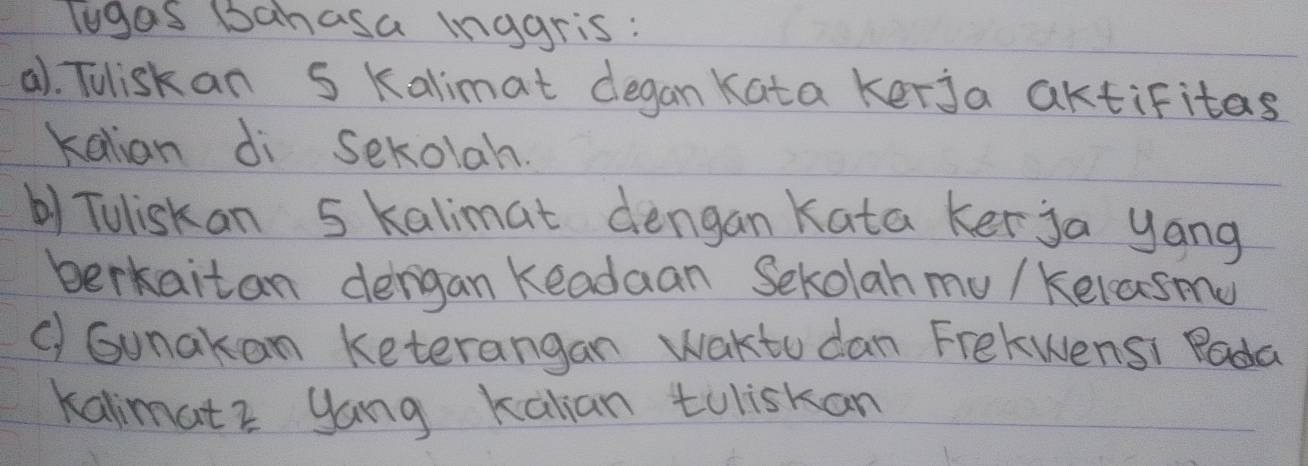 Tugas Bahasa Inggris:
a). Tuliskan 5 Kalimat degan Kata Kerja aktifitas
kalian di Sekolah.
b) Tuliskan 5 kalimat dengan Kata Kerja yang
berkaitan dengan Keadaan Sekolahmu / Kelasmu
c) Gunakan Keterangan Waktu dan Frekwensi Pada
Kalimat2 yang kalian tuliskan